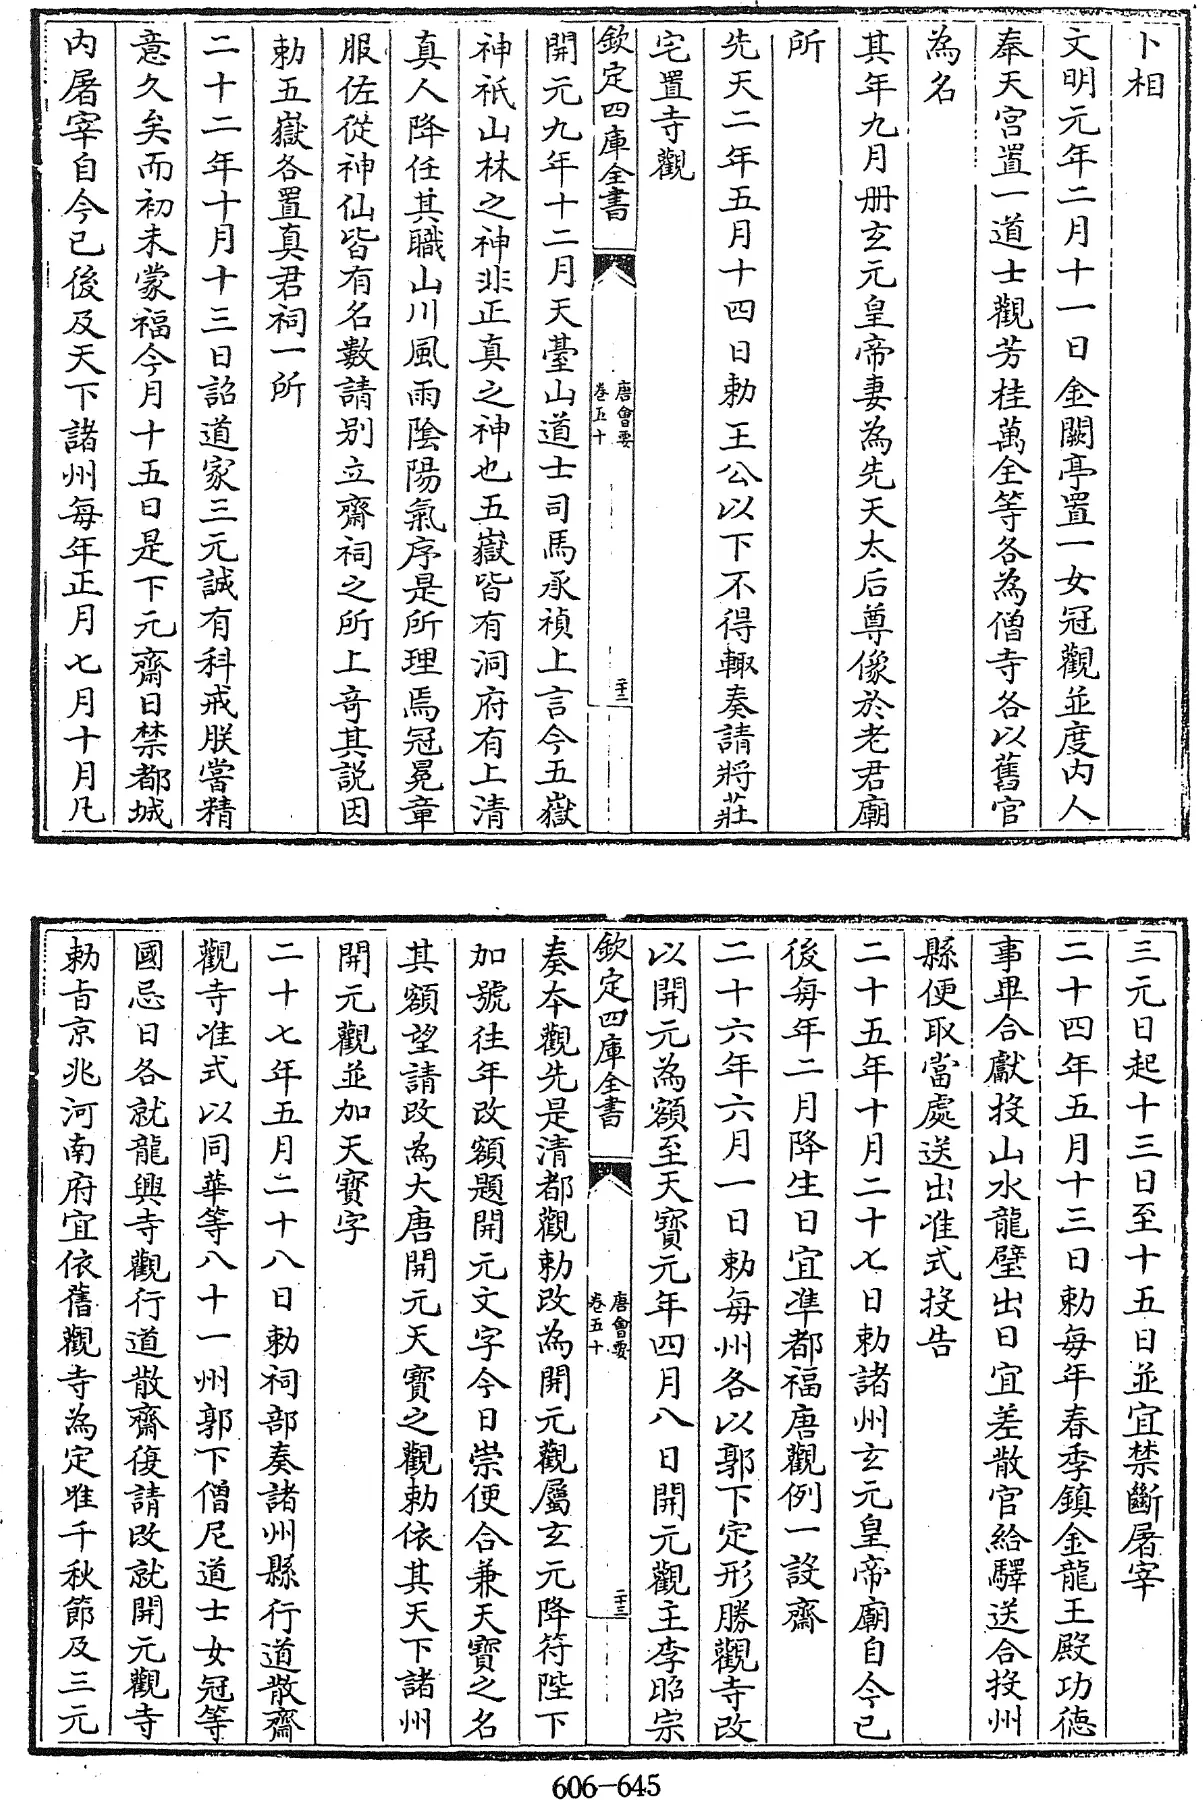 卜相
文明元年二月十一日金闕亭置一女冠觀並度内人
奉天宫置一道士觀芳桂萬全等各為僧寺各以舊官
為名
其年九月册玄元皇帝妻為先天太后尊像於老君廟
所
先天二年五月十四日勅王公以下不得輙奏請將莊
宅置寺觀
欽定四庫全書
唐會要
卷五十
二十二
開元九年十二月天臺山道士司馬承禎上言今五嶽
神祇山林之神非正真之神也五嶽皆有洞府有上清
真人降任其職山川風雨陰陽氣序是所理焉冠冕章
服佐從神仙皆有名數請别立齋祠之所上奇其說因
勅五嶽各置真君祠一所
二十二年十月十三日詔道家三元誠有科戒朕嘗精
意久矣而初未蒙福今月十五日是下元齋日禁都城
内屠宰自今已後及天下諸州每年正月七月十月凡
三元日起十三日至十五日並宜禁斷屠宰
二十四年五月十三日勅每年春季鎮金龍王殿功德
事畢合獻投山水龍璧出日宜差散官給驛送合投州
縣便取當處送出准式投告
二十五年十月二十七日勅諸州玄元皇帝廟自今已
後每年二月降生日宜準都福唐觀例一設齋
二十六年六月一日勅每州各以郭下定形勝觀寺改
以開元為額至天寳元年四月八日開元觀主李昭宗
欽定四庫全書
唐會要
卷五十
二十三
奏本觀先是清都觀勅改為開元觀屬玄元降符陛下
加號往年改額題開元文字今日崇便合兼天寳之名
其額望請改為大唐開元天寳之觀勅依其天下諸州
開元觀並加天寳字
二十七年五月二十八日勅祠部奏諸州縣行道散齋
觀寺准式以同華等八十一州郭下僧尼道士女冠等
國忌日各就龍興寺觀行道散齋復請改就開元觀寺
勅旨京兆河南府宜依舊觀寺為定惟千秋節及三元
606-645